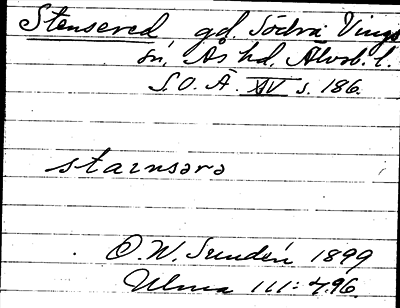 Stensered gd. Södra Vings
sn, Ås hd, Älvsb. l.
S.O.Ä. XIV s. 186.
stainsərə
O.W. Sundén 1899
Ulma 111:496.